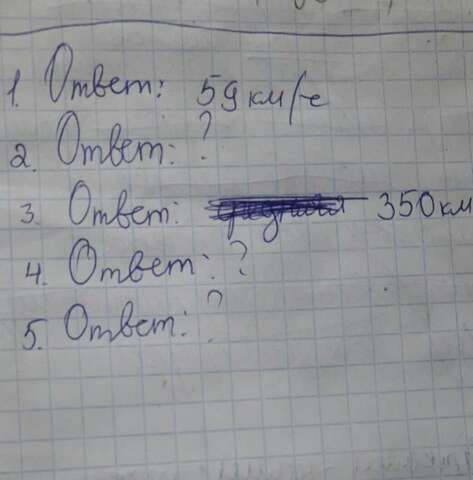 1. Ответ: 59 км/ч
2. Ответ: ?
3. Ответ: 350км
4. Ответ: ?
5. Ответ: ?